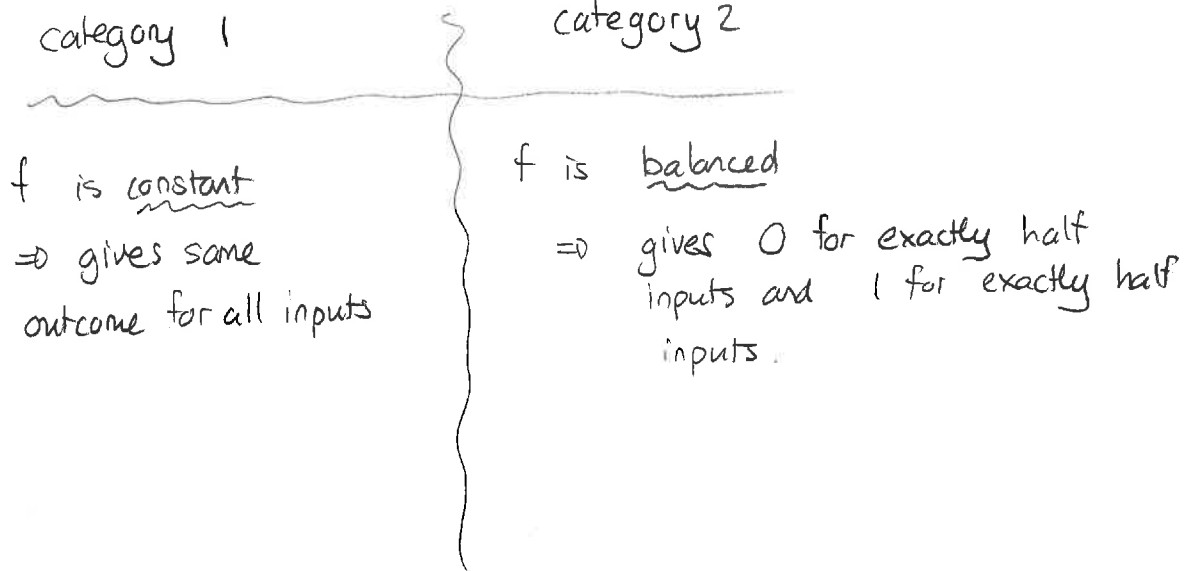 category 1
f is constant
⇒ gives same
outcome for all inputs
category 2
f is balanced
⇒ gives 0 for exactly half
inputs and 1 for exactly half
inputs.